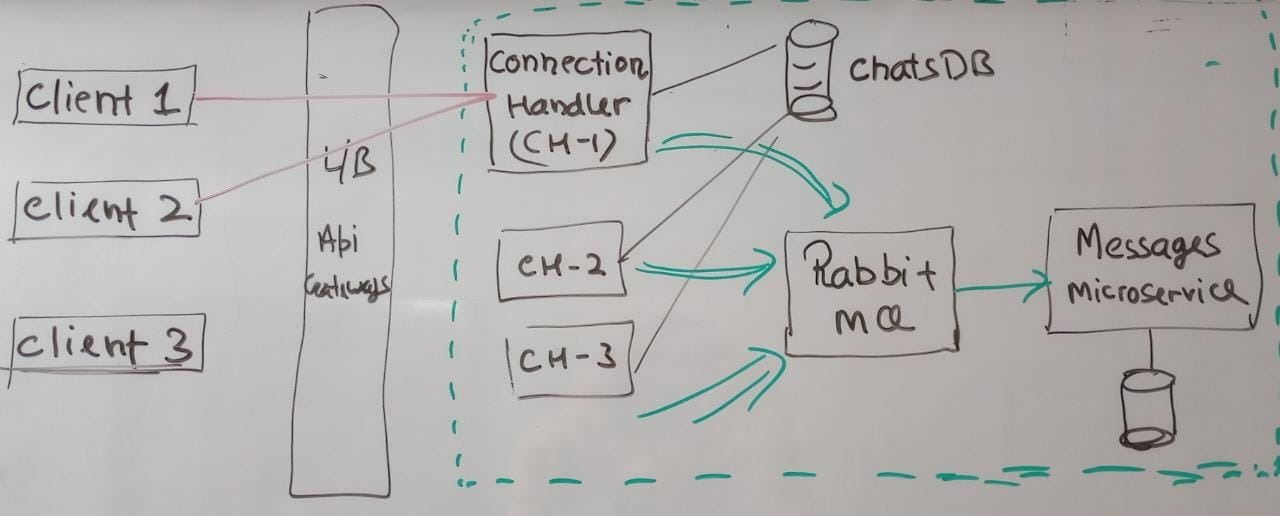 Client 1
Client 2
Client 3
L/B
Api
Gateways
Connection
Handler
(CH-1)
CH-2
CH-3
ChatsDB
Rabbit
MQ
Messages
Microservice